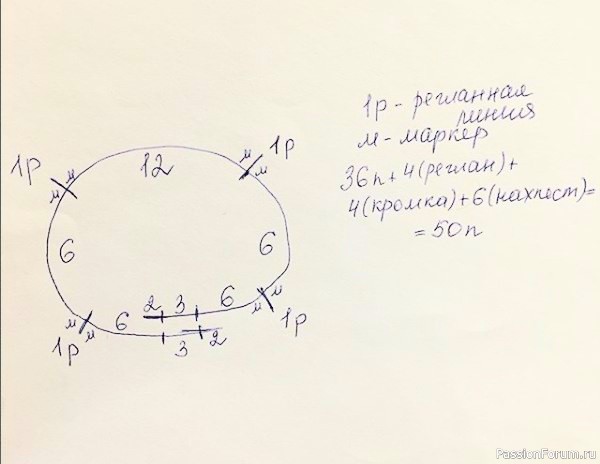 1р - регланная
линия
м - маркер
36п + 4(реглан) +
4(кромка) + 6(нахлест) =
= 50п
1р м м 12 м м 1р
6 6
м м 1р 6 2 3 6 м м 1р
3 2
PassionForum.ru